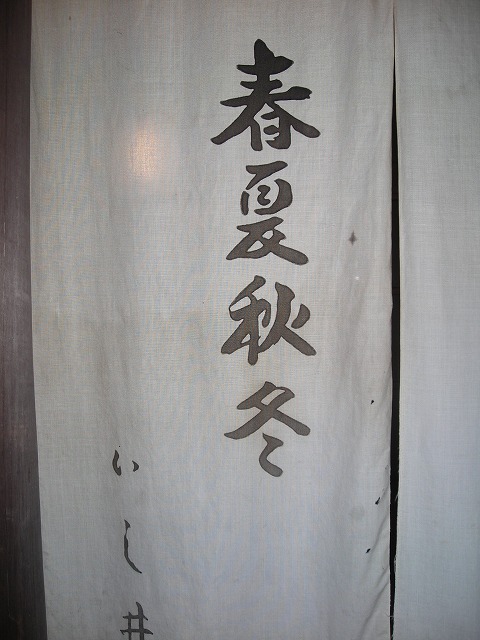 春夏秋冬
いし井